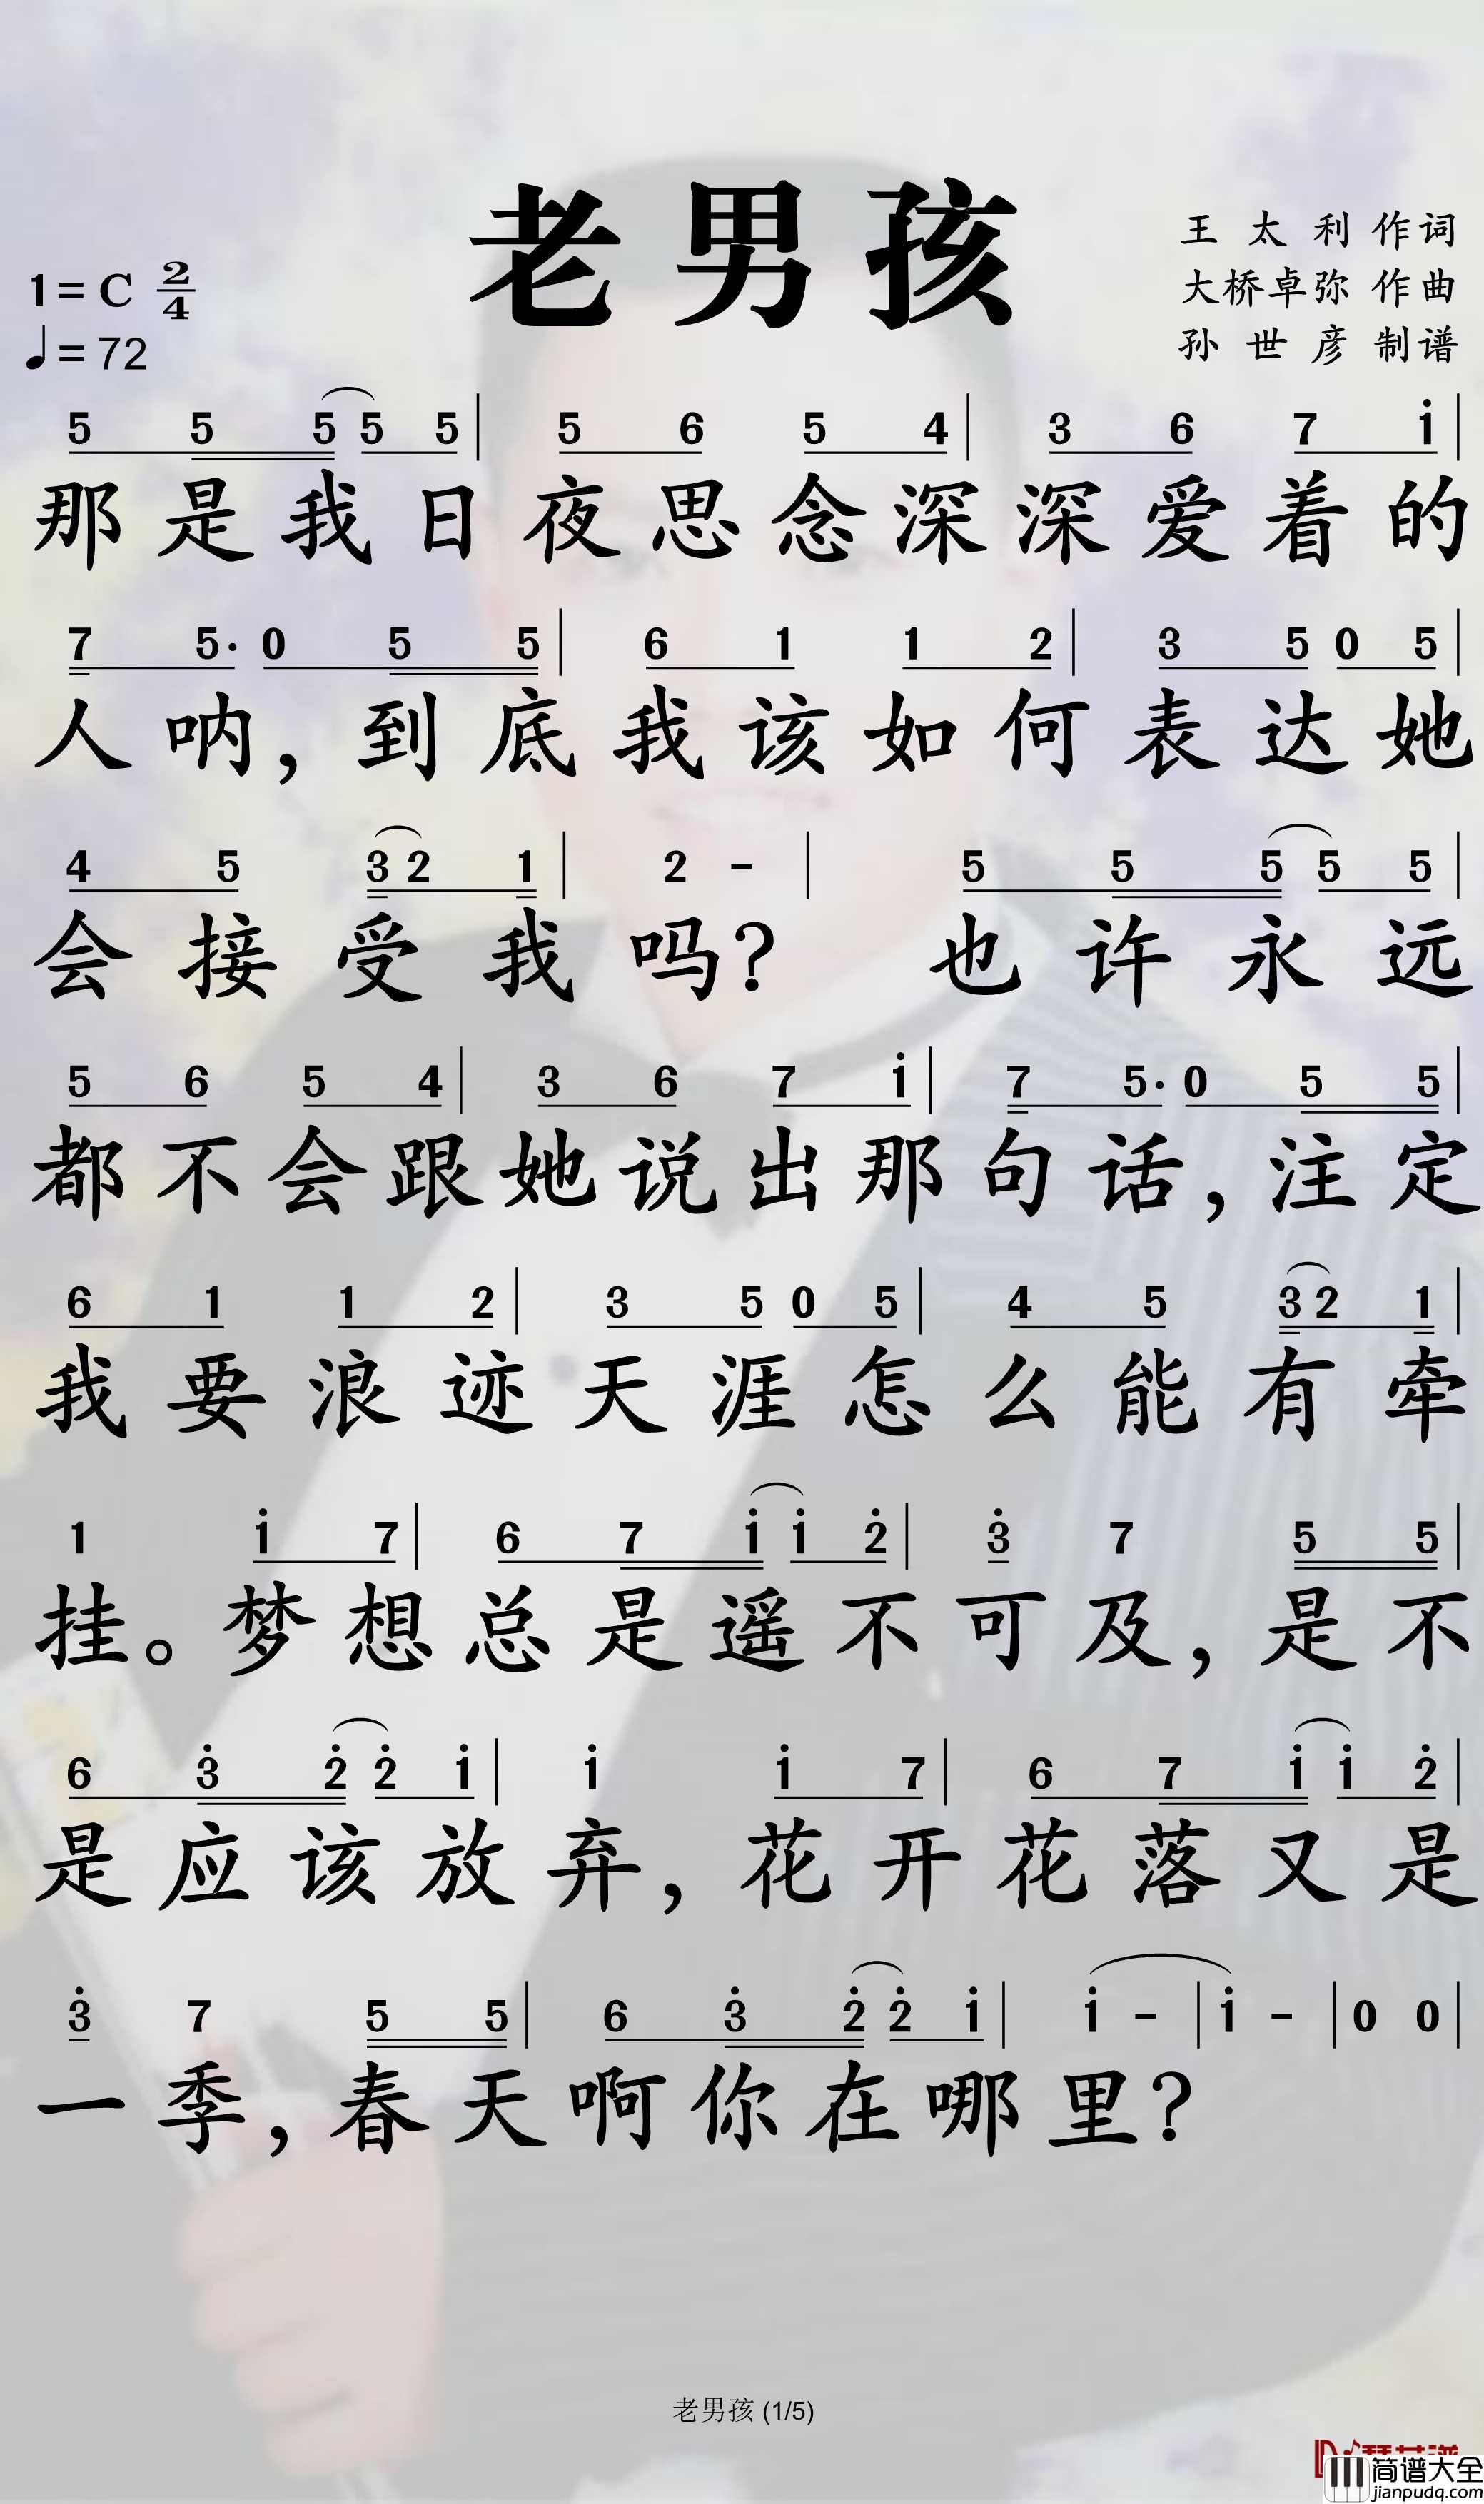 老男孩
王太利作词
大桥卓弥作曲
孙世彦制谱
1=C 2/4
♩=72
5 5 5 5 5 | 5 6 5 4 | 3 6 7 i |
那是我日夜思念深深爱着的
7 5· 0 5 5 | 6 1 1 2 | 3 5 0 5 |
人呐，到底我该如何表达她
4 5 3 2 1 | 2 - | 5 5 5 5 5 |
会接受我吗？ 也许永远
5 6 5 4 | 3 6 7 i | 7 5· 0 5 5 |
都不会跟她说出那句话，注定
6 1 1 2 | 3 5 0 5 | 4 5 3 2 1 |
我要浪迹天涯怎么能有牵
1 i 7 | 6 7 i i 2̇ | 3̇ 7 5 5 |
挂。梦想总是遥不可及，是不
6 3̇ 2̇ 2̇ i | i i 7 | 6 7 i i 2̇ |
是应该放弃，花开花落又是
3̇ 7 5 5 | 6 3̇ 2̇ 2̇ i | i - | i - | 0 0 |
一季，春天啊你在哪里？
老男孩 (1/5)
简谱大全
jianpudq.com